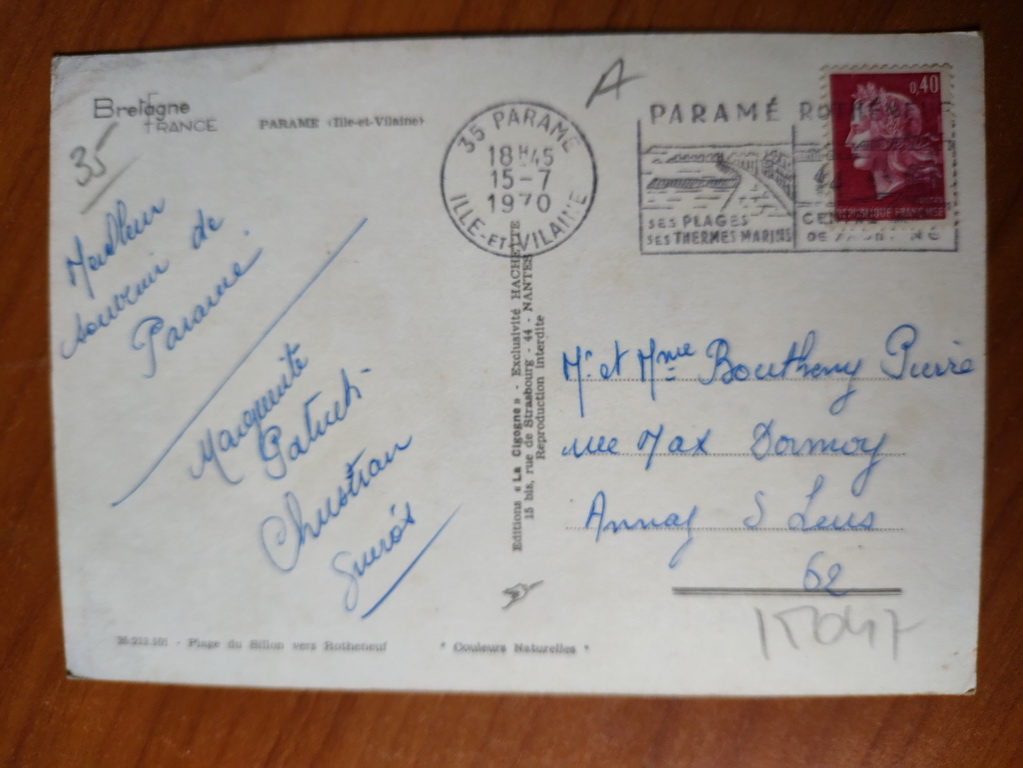 Bretagne
FRANCE
PARAME (Ille-et-Vilaine)
35
Meilleur
souvenir de
Paramé.
Marguerite
Patrick
Christian
A
35 PARAME
18H45
15-7
1970
ILLE-ET-VILAINE
PARAMÉ
SES PLAGES
SES THERMES MARINS
DE
0,40
REPUBLIQUE FRANÇAISE
Editions « La Cigogne » - Exclusivité HACHETTE
15 bis, rue de Strasbourg - 44 - NANTES
Reproduction Interdite
Mr et Mme Bouthemy Pierre
rue Max Dormoy
Annay S Lens
62
- Plage du Sillon vers Rotheneuf
* Couleurs Naturelles *